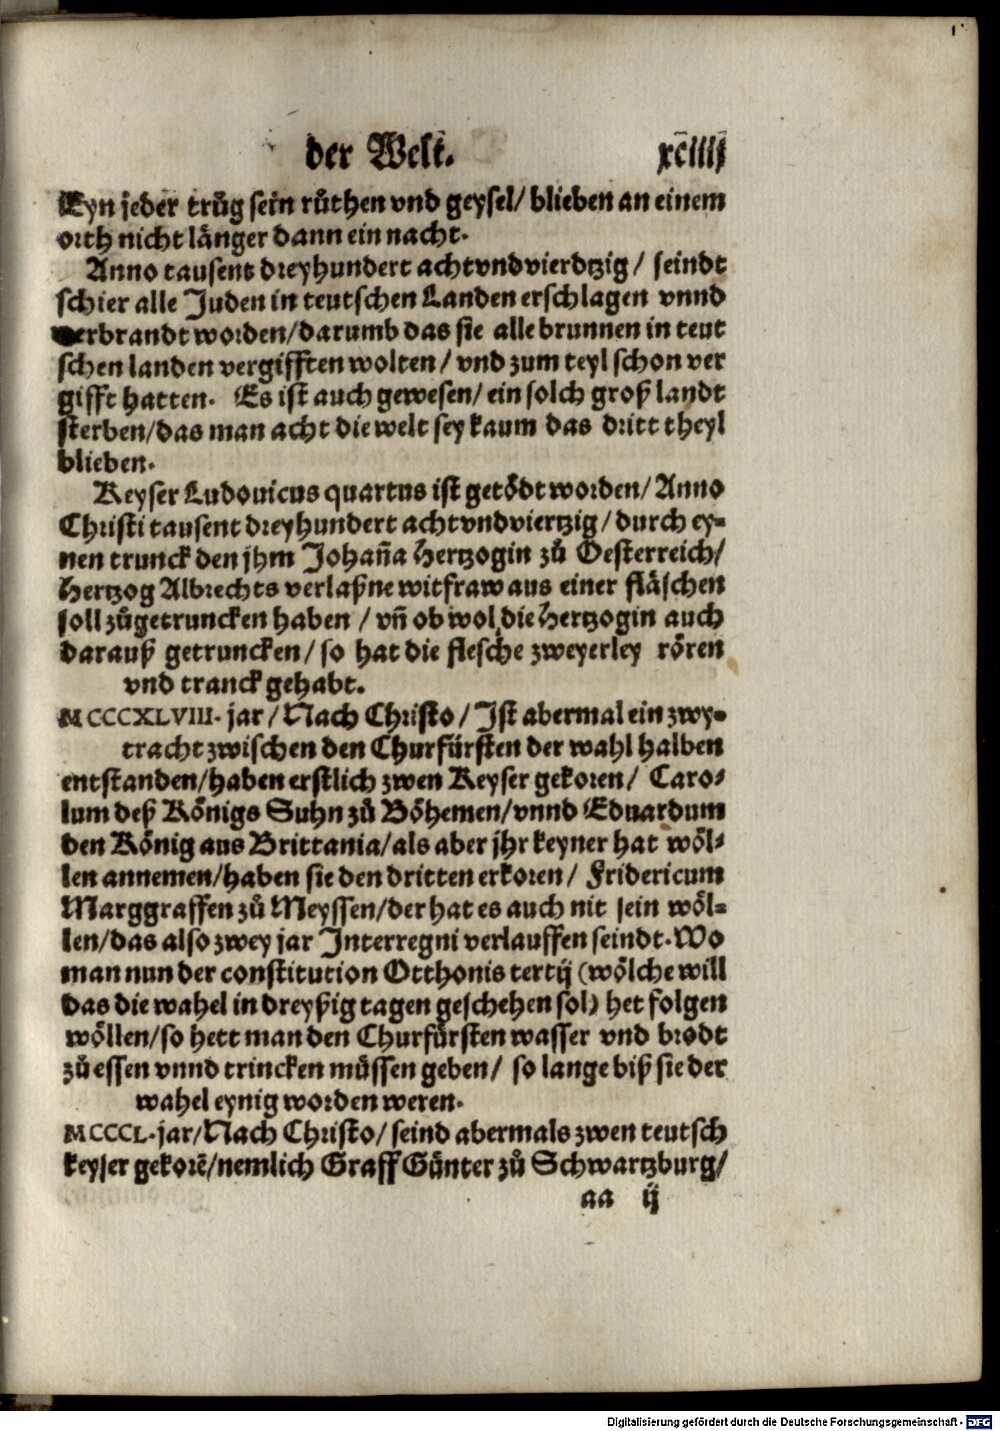 der Welt. xciiij
Eyn jeder trůg sein růthen vnd geysel/ blieben an einem
orth nicht länger dann ein nacht.
Anno tausent dreyhundert achtvndvierdtzig / seindt
schier alle Juden in teutschen Landen erschlagen vnnd
verbrandt worden/darumb das sie alle brunnen in teut
schen landen vergifften wolten / vnd zum teyl schon ver
gifft hatten. Es ist auch gewesen/ ein solch groß landt
sterben/das man acht die welt sey kaum das dritt theyl
blieben.
Keyser Ludouicus quartus ist getödt worden/ Anno
Christi tausent dreyhundert achtvndviertzig / durch ey-
nen trunck den jhm Johaña Hertzogin zů Oesterreich/
Hertzog Albrechts verlaßne witfraw aus einer fläschen
soll zůgetruncken haben / vñ ob wol die Hertzogin auch
darauß getruncken/ so hat die flesche zweyerley rören
vnd tranck gehabt.
MCCCXLVIII. jar / Nach Christo / Ist abermal ein zwy-
tracht zwischen den Churfürsten der wahl halben
entstanden/haben erstlich zwen Keyser gekoren/ Caro-
lum deß Königs Suhn zů Böhemen/vnnd Eduardum
den König aus Brittania/als aber jhr keyner hat wöl-
len annemen/haben sie den dritten erkoren/ Fridericum
Marggraffen zů Meyssen/der hat es auch nit sein wöl-
len/das also zwey jar Interregni verlauffen seindt. Wo
man nun der constitution Otthonis tertij (wölche will
das die wahel in dreyßig tagen geschehen sol) het folgen
wöllen/so hett man den Churfürsten wasser vnd brodt
zů essen vnnd trincken müssen geben/ so lange biß sie der
wahel eynig worden weren.
MCCCL. jar/Nach Christo/ seind abermals zwen teutsch
keyser gekorē/nemlich Graff Günter zů Schwartzburg/
aa ij
Digitalisierung gefördert durch die Deutsche Forschungsgemeinschaft - DFG